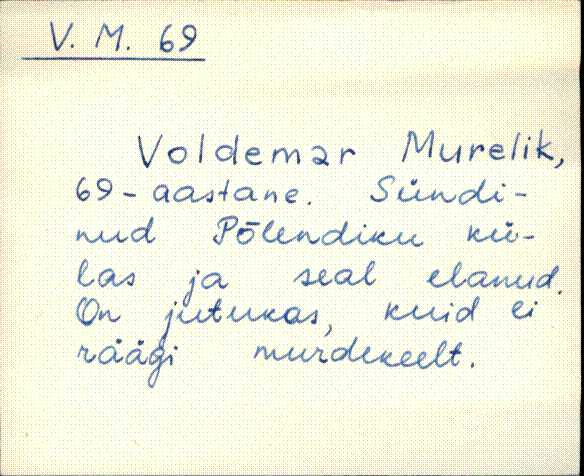 V. M. 69
Voldemar Murelik,
69-aastane. Sündi-
nud Põlendiku kü-
las ja seal elanud.
On jutukas, kuid ei
räägi murdekeelt.